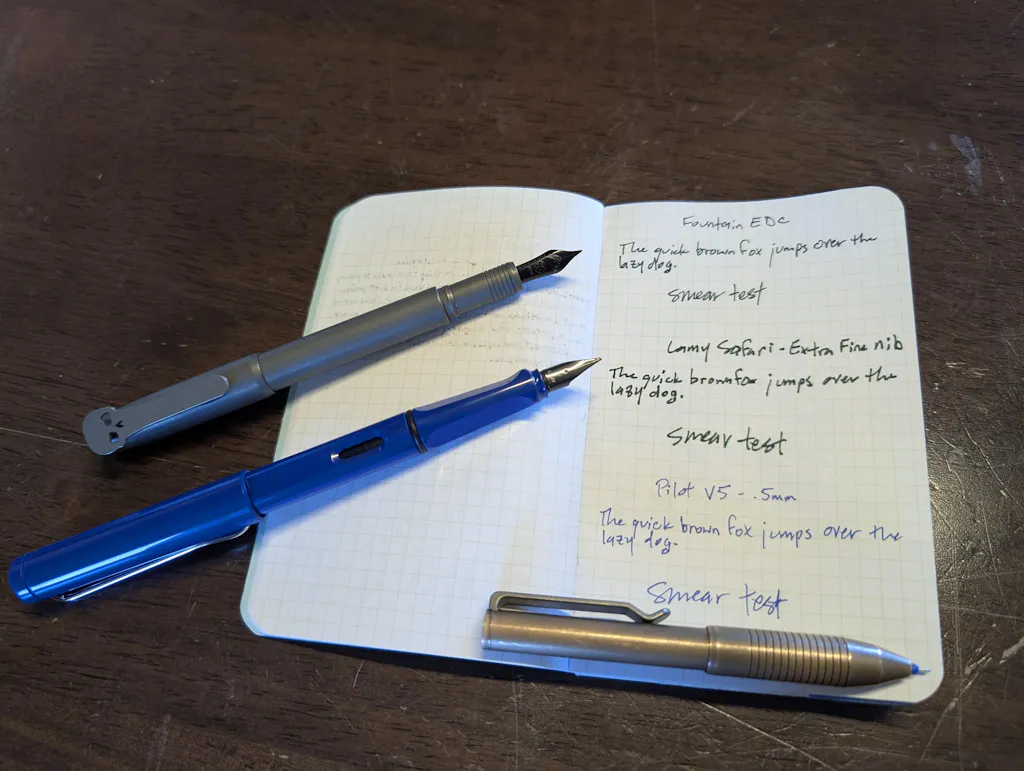 Fountain EDC
The quick brown fox jumps over the
lazy dog.
smear test
Lamy Safari - Extra Fine nib
The quick brown fox jumps over the
lazy dog.
smear test
Pilot V5 - .5mm
The quick brown fox jumps over the
lazy dog.
smear test